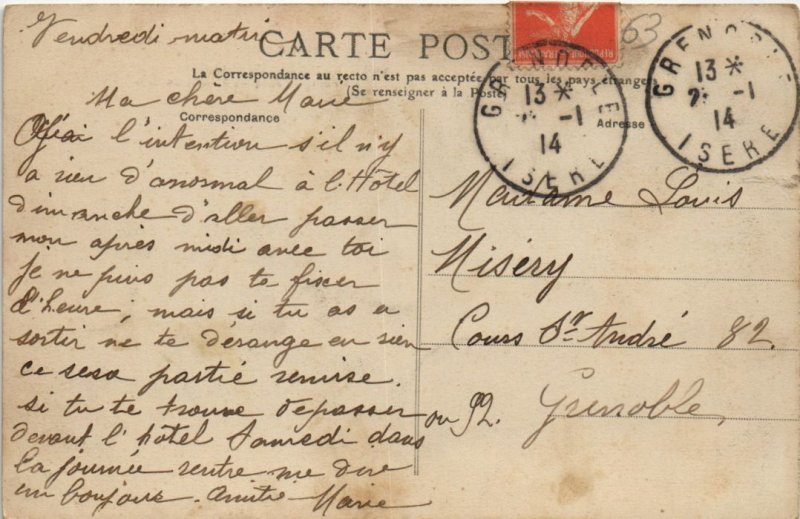 Vendredi matin
CARTE POST
63
La Correspondance au recto n'est pas acceptée par tous les pays étrangers
(Se renseigner à la Poste)
GRENOBLE
13 *
-1
14
ISERE
GRENOBLE
13 *
2 -1
14
ISERE
Correspondance
Adresse
Ma chère Marie
J'ai l'intention s'il n'y
a rien d'anormal à l'Hôtel
dimanche d'aller passer
mon après midi avec toi
je ne puis pas te fixer
d'heure, mais si tu as a
sortir ne te dérange en rien
ce sera partie remise.
si tu te trouve depasser
devant l'hôtel Samedi dans
la journée rentre me dire
un bonjour. Amitié Marie
Madame Louis
Miséry
Cours St André 82.
ou 92. Grenoble,